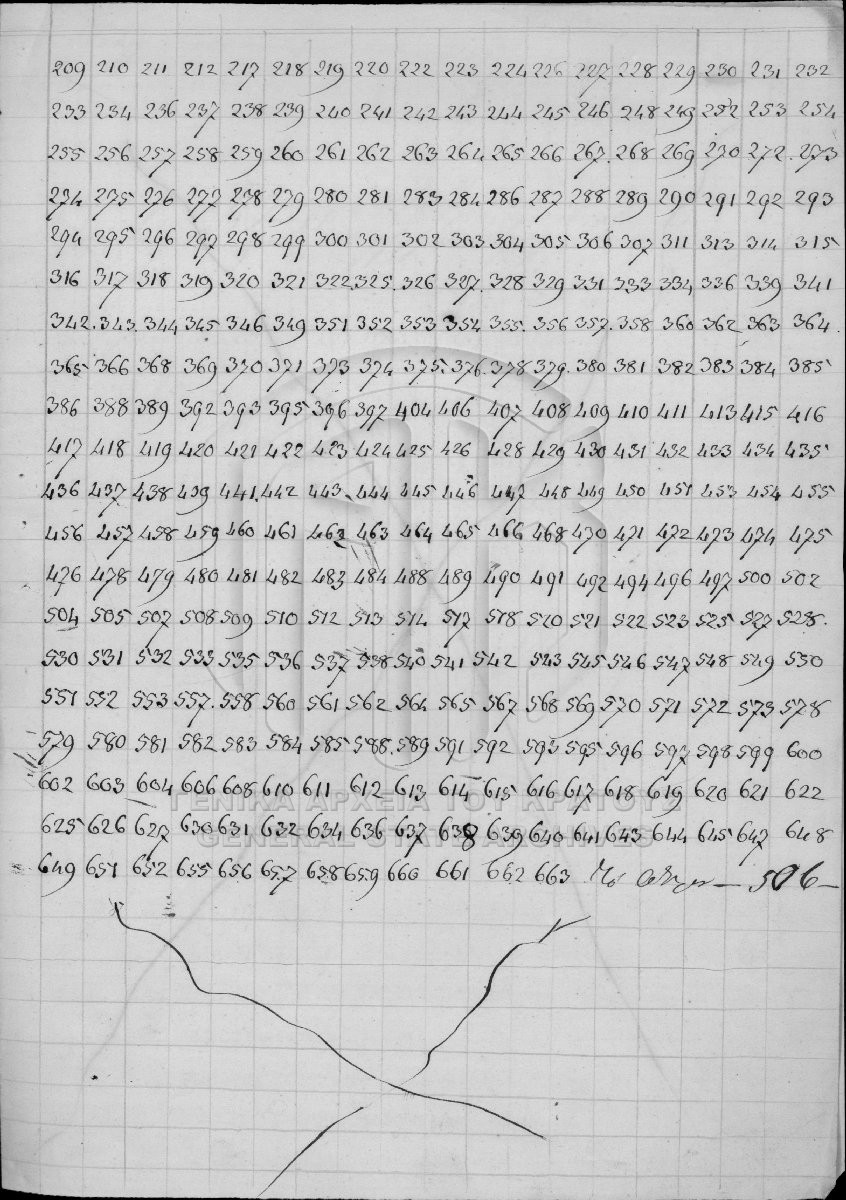 209 210 211 212 217 218 219 220 222 223 224 226 227 228 229 230 231 232
233 234 236 237 238 239 240 241 242 243 244 245 246 248 249 252 253 254
255 256 257 258 259 260 261 262 263 264 265 266 267. 268 269 270 272. 273
274 275 276 277 278 279 280 281 283 284 286 287 288 289 290 291 292 293
294 295 296 297 298 299 300 301 302 303 304 305 306 307 311 313 314 315
316 317 318 319 320 321 322 325. 326 327. 328 329 331 333 334 336 339 341
342. 343. 344 345 346 349 351 352 353 354 355. 356 357. 358 360 362 363 364
365 366 368 369 370 371 373 374 375. 376. 378 379. 380 381 382 383 384 385
386 388 389 392 393 395 396 397 404 406 407 408 409 410 411 413 415 416
417 418 419 420 421 422 423 424 425 426 428 429 430 431 432 433 434 435
436 437 438 439 441. 442 443 444 445 446 447 448 449 450 451 453 454 455
456 457 458 459 460 461 462 463 464 465 466 468 470 471 472 473 474 475
476 478 479 480 481 482 483 484 488 489 490 491 492 494 496 497 500 502
504 505 507 508 509 510 512 513 514 517 518 520 521 522 523 525 527 528.
530 531 532 533 535 536 537 538 540 541 542 543 545 546 547 548 549 550
551 552 553 557. 558 560 561 562 564 565 567 568 569 570 571 572 573 578
579 580 581 582 583 584 585 588. 589 591 592 593 595 596 597 598 599 600
602 603 604 606 608 610 611 612 613 614 615 616 617 618 619 620 621 622
ΓΕΝΙΚΑ ΑΡΧΕΙΑ ΤΟΥ ΚΡΑΤΟΥΣ
625 626 627 630 631 632 634 636 637 638 639 640 641 643 644 645 647 648
GENERAL STATE ARCHIVES
649 651 652 655 656 657 658 659 660 661 662 663 506